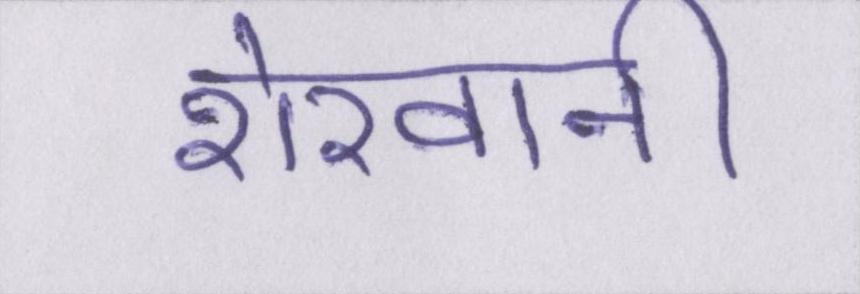 शेरवानी